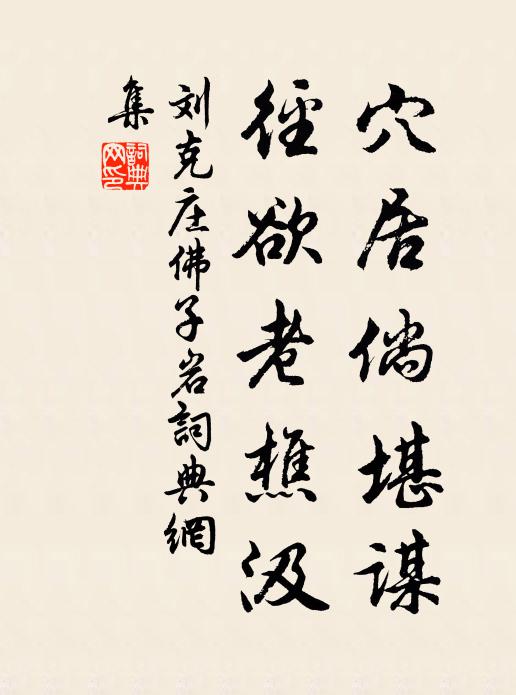 穴居倘堪谋
径欲老樵汲
刘克庄佛子岩詞典網
集
詞典網印